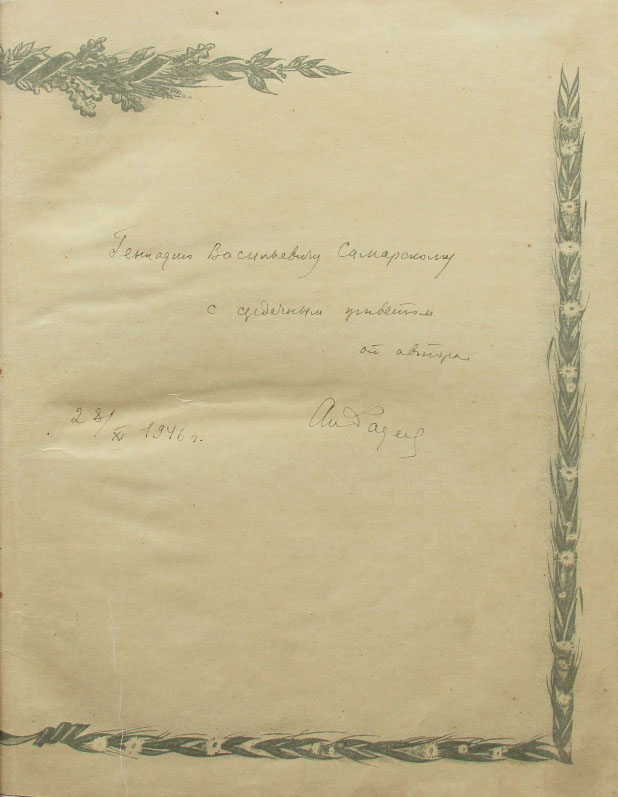 Геннадию Васильевичу Самарскому
с сердечным приветом
от автора
28/XI 1946 г.